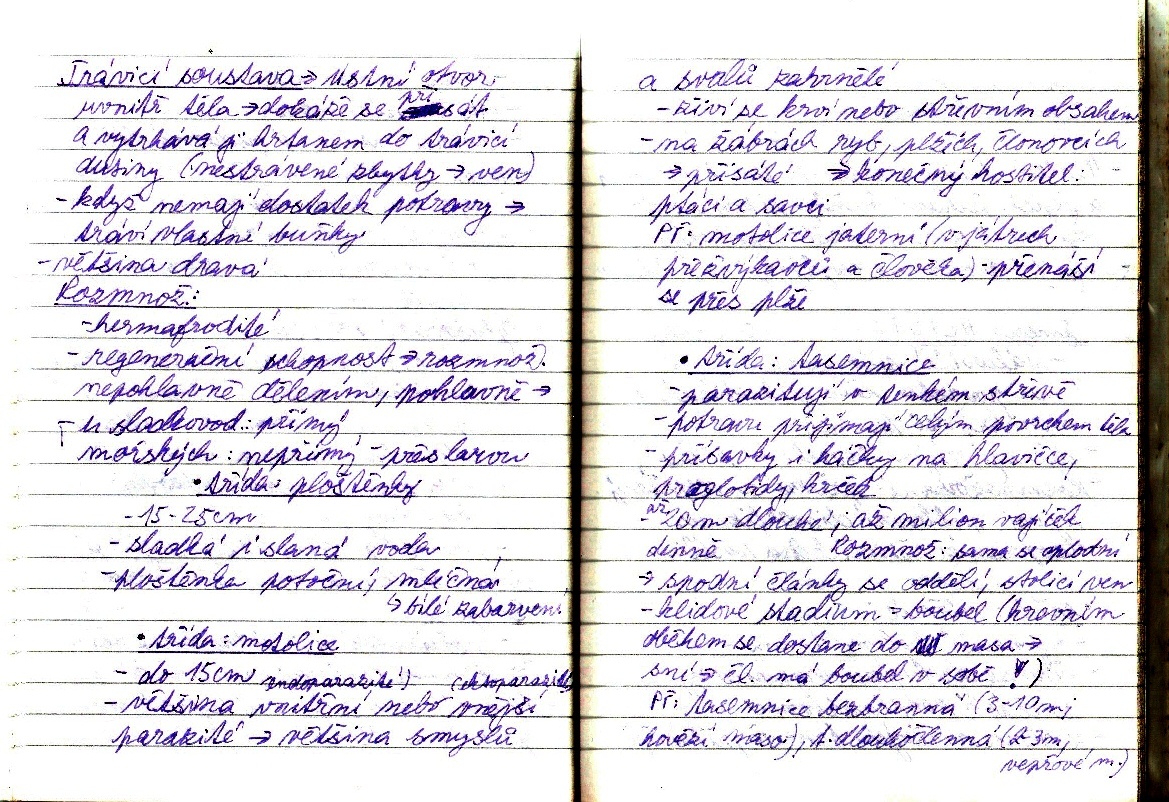 Trávicí soustava → ústní otvor
uvnitř těla → dokáže se přisát
a vytrhává ji hrtanem do trávicí
dutiny (nestrávené zbytky → ven)
- když nemají dostatek potravy →
tráví vlastní buňky
- většina dravá
Rozmnož.:
- hermafrodité
- regenerační schopnost → rozmnož.
nepohlavně dělením, pohlavně →
u sladkovod.: přímý
mořských: nepřímý - přes larvu
• třída: ploštěnky
- 15-25cm
- sladká i slaná voda
- ploštěnka potoční, mléčná
↳ bílé zabarvení
• třída: motolice
- do 15cm endoparazité) (ektoparazité
- většina vnitřní nebo vnější
parazité → většina smyslů
a svalů zakrnělé
- živí se krví nebo střevním obsahem
- na žábrách ryb, plžích, členovcích
→ přisáté → konečný hostitel:
ptáci a savci
Př: motolice jaterní (v játrech
přežvýkavců a člověka) - přenáší
se přes plže
• třída: tasemnice
- parazitují v tenkém střevě
- potravu přijímají celým povrchem těla
- přísavky i háčky na hlavičce,
proglotidy, krček
- až 20m dlouhé, až milion vajíček
denně Rozmnož: sama se oplodní
→ spodní články se oddělí, stolicí ven
- klidové stadium = boubel (krevním
oběhem se dostane do masa →
sní → čl. má boubel v sobě !)
Př: tasemnice bezbranná (3-10m,
hovězí maso), t. dlouhočlenná (2-3m,
vepřové m.)